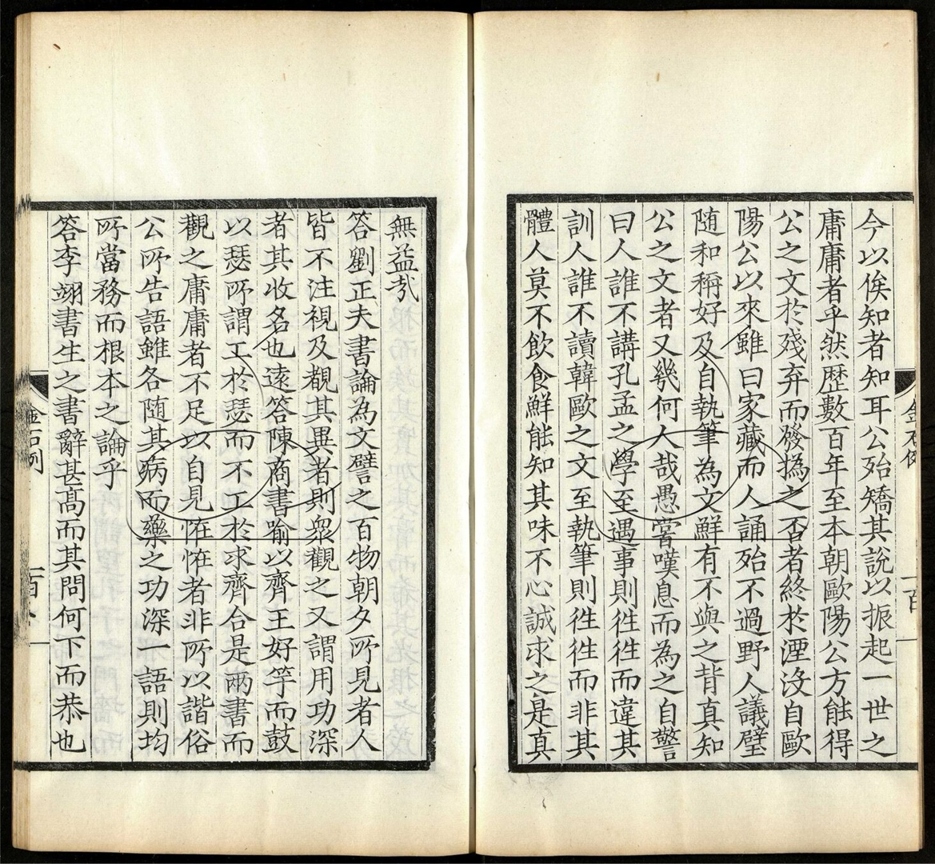 今以俟知者知耳公殆矯其說以振起一世之
庸庸者乎然歷數百年至本朝歐陽公方能得
公之文於殘弃而發撝之否者終於湮没自歐
陽公以來雖曰家藏而人誦殆不過野人議璧
随和稱好及自執筆為文鮮有不與之背真知
公之文者又幾何人哉愚嘗嘆息而為之自警
曰人誰不講孔孟之學至遇事則徃徃而違其
訓人誰不讀韓歐之文至執筆則徃徃而非其
體人莫不飲食鮮能知其味不心誠求之是真
無益㢤
答劉正夫書論為文譬之百物朝夕所見者人
皆不注視及觀其異者則衆觀之又謂用功深
者其收名也遠答陳商書喻以齊王好竽而鼓
以瑟所謂工於瑟而不工於求齊合是兩書而
觀之庸庸者不足以自見恠恠者非所以諧俗
公所告語雖各随其病而藥之功深一語則均
所當務而根本之論乎
答李翊書生之書辭甚髙而其問何下而恭也
金石例